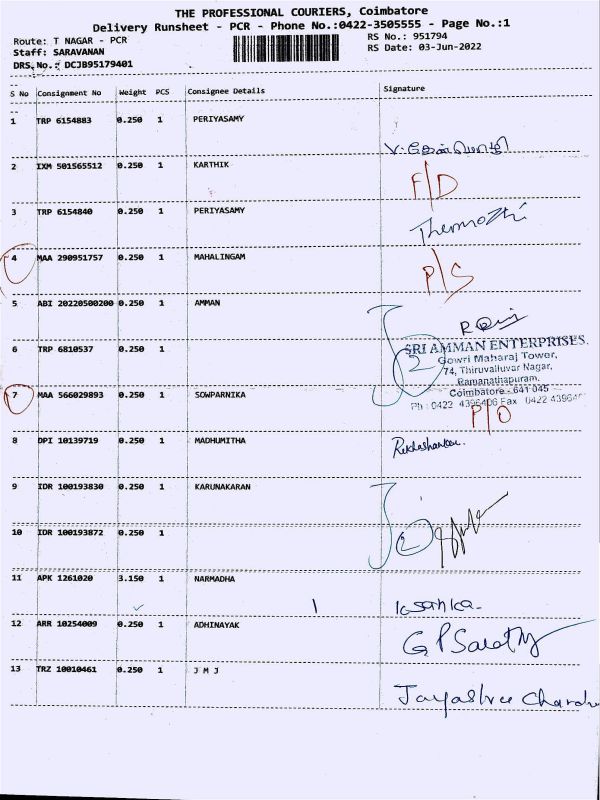 THE PROFESSIONAL COURIERS, Coimbatore
Delivery Runsheet - PCR - Phone No.:0422-3505555 - Page No.:1
Route: T NAGAR - PCR
RS No.: 951794
Staff: SARAVANAN
RS Date: 03-Jun-2022
DRS.No.: DCJB95179401
S No Consignment No Weight PCS Consignee Details Signature
1 TRP 6154883 0.250 1 PERIYASAMY
2 IXM 501565512 0.250 1 KARTHIK F/D
3 TRP 6154840 0.250 1 PERIYASAMY Thenmozhi
4 MAA 290951757 0.250 1 MAHALINGAM P/S
5 ABI 20220500200 0.250 1 AMMAN
6 TRP 6810537 0.250 1 2
SRI AMMAN ENTERPRISES.
Gowri Maharaj Tower,
74, Thiruvalluvar Nagar,
Ramanathapuram.
Coimbatore - 641 045
Ph : 0422 4396406 Fax 0422 43964
7 MAA 566029893 0.250 1 SOWPARNIKA P/O
8 DPI 10139719 0.250 1 MADHUMITHA
9 IDR 100193830 0.250 1 KARUNAKARAN
10 IDR 100193872 0.250 1 2
11 APK 1261020 3.150 1 NARMADHA 1
12 ARR 10254009 0.250 1 ADHINAYAK
13 TRZ 10010461 0.250 1 J M J Jayashree